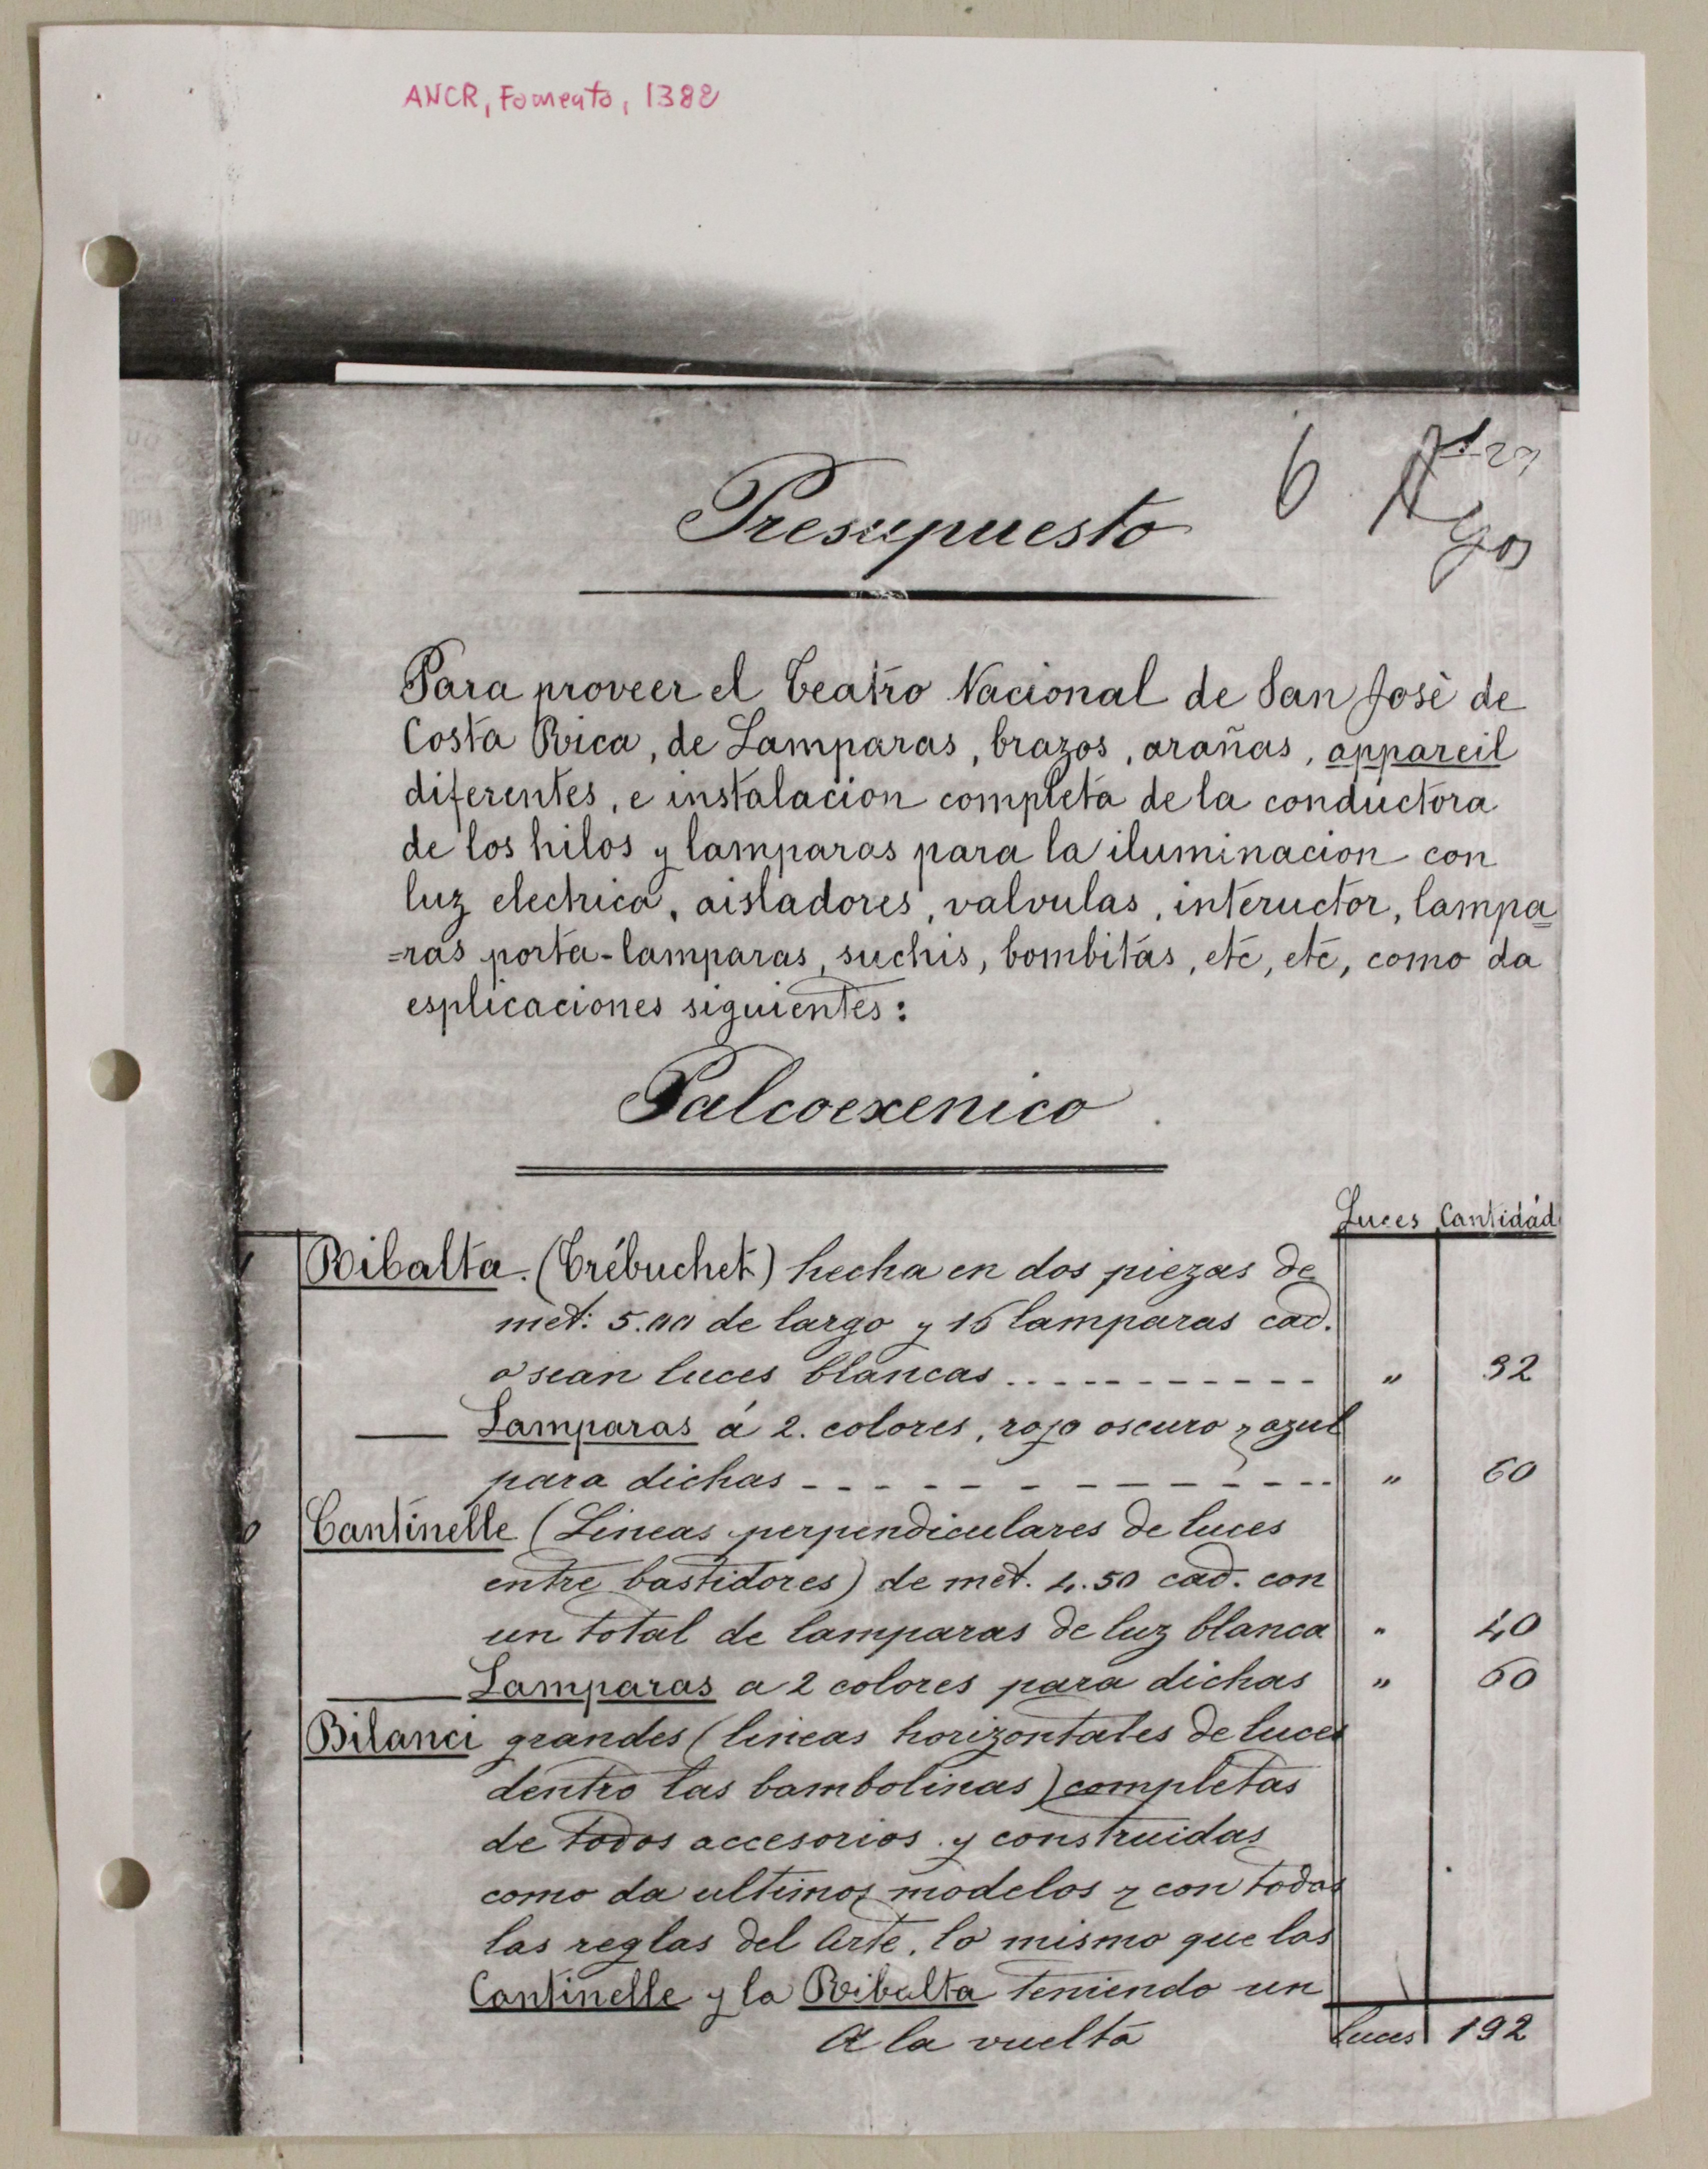 ANCR, Fomento, 1388
6
Presupuesto
Para proveer el Teatro Nacional de San Josè de
Costa Rica, de Lamparas, brazos, arañas, appareil
diferentes, e instalacion completa de la conductora
de los hilos y lamparas para la iluminacion con
luz electrica, aisladores, valvulas, inteructor, lampa=
=ras porta-lamparas, suchis, bombitas, etc, etc, como da
esplicaciones siguientes:
Palcoexenico
Luces Cantidád
Ribalta. (Trébuchet) hecha en dos piezas de
met: 5.00 de largo y 16 lamparas cad.
o sean luces blancas ........... " 32
Lamparas á 2. colores, rojo oscuro y azul
para dichas ----------- " 60
Cantinelle (Lineas perpendiculares de luces
entre bastidores) de met. 4.50 cad. con
un total de lamparas de luz blanca " 40
Lamparas a 2 colores para dichas " 60
Bilanci grandes (lineas horizontales de luces
dentro las bambolinas) completas
de todos accesorios y construidas
como da ultimos modelos y con todas
las reglas del Arte, lo mismo que las
Cantinelle y la Ribalta teniendo un
A la vuelta Luces 192